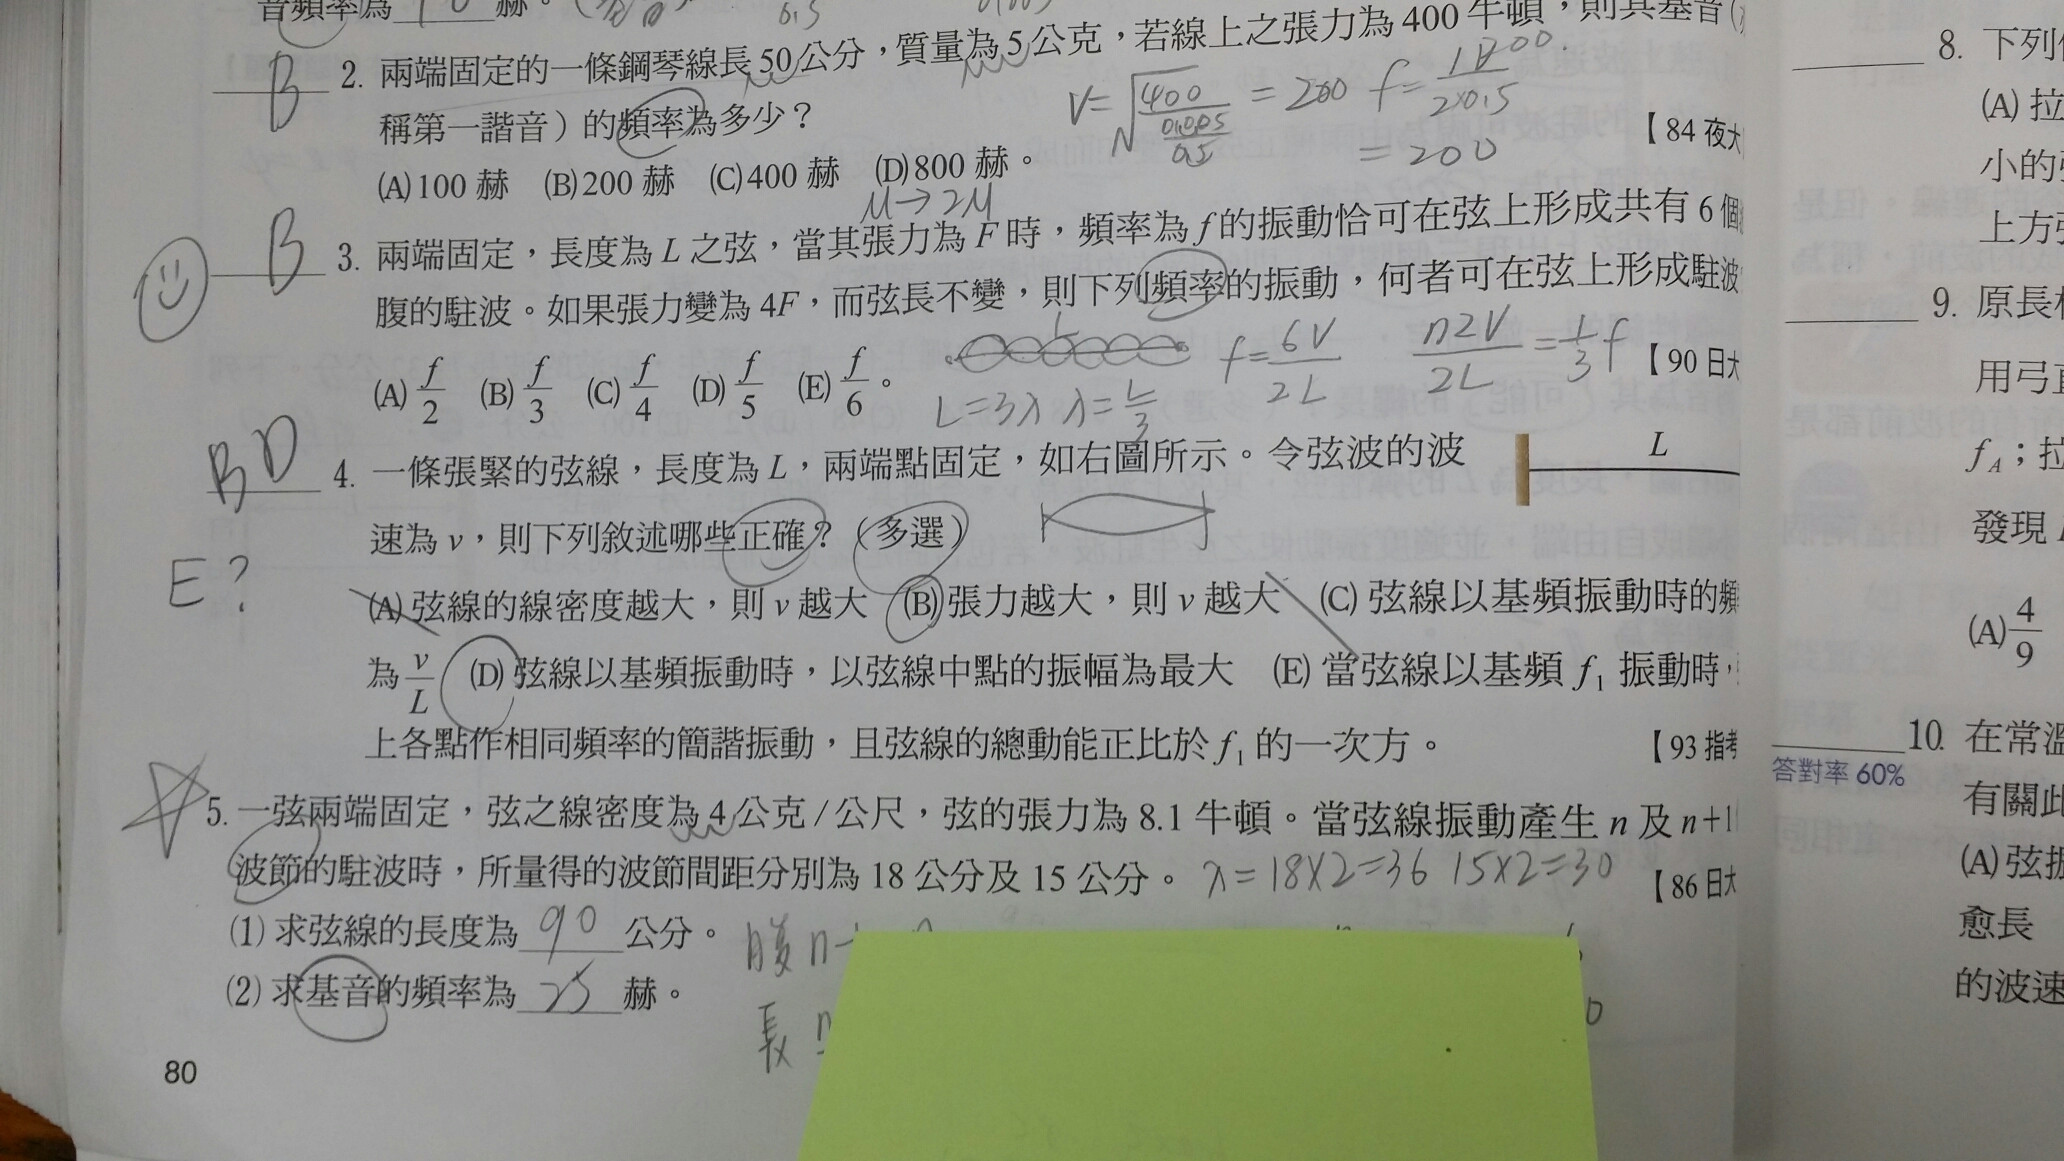 音頻率為 赫。
B 2. 兩端固定的一條鋼琴線長50公分，質量為5公克，若線上之張力為400牛頓，則其基音(
稱第一諧音）的頻率為多少？
【84 夜大
(A)100 赫 (B)200 赫 (C)400 赫 (D)800 赫。
V=√400/(0.005/0.5) = 200 f=
2×0.5
=200
μ→2μ
B 3. 兩端固定，長度為L之弦，當其張力為F時，頻率為f的振動恰可在弦上形成共有6個
腹的駐波。如果張力變為4F，而弦長不變，則下列頻率的振動，何者可在弦上形成駐波
(A) f/2 (B) f/3 (C) f/4 (D) f/5 (E) f/6。
【90 日大
L
f=6V/2L n2V/2L=1/3 f
L=3λ λ=L/3
BD 4. 一條張緊的弦線，長度為L，兩端點固定，如右圖所示。令弦波的波
L
速為v，則下列敘述哪些正確？（多選）
E?
(A)弦線的線密度越大，則v越大 (B)張力越大，則v越大 (C)弦線以基頻振動時的頻
為 v/L (D)弦線以基頻振動時，以弦線中點的振幅為最大 (E)當弦線以基頻 f₁ 振動時，
上各點作相同頻率的簡諧振動，且弦線的總動能正比於 f₁ 的一次方。
【93 指考
5. 一弦兩端固定，弦之線密度為4公克/公尺，弦的張力為8.1牛頓。當弦線振動產生n及n+1
波節的駐波時，所量得的波節間距分別為18公分及15公分。
λ=18×2=36 15×2=30
【86 日大
(1) 求弦線的長度為 90 公分。
腹 n
(2) 求基音的頻率為 25 赫。
長
80
8. 下列
(A) 拉
小的
上方
9. 原長
用弓
發現
(A) 4/9
10. 在常溫
答對率 60%
有關此
(A) 弦振
愈長
的波速